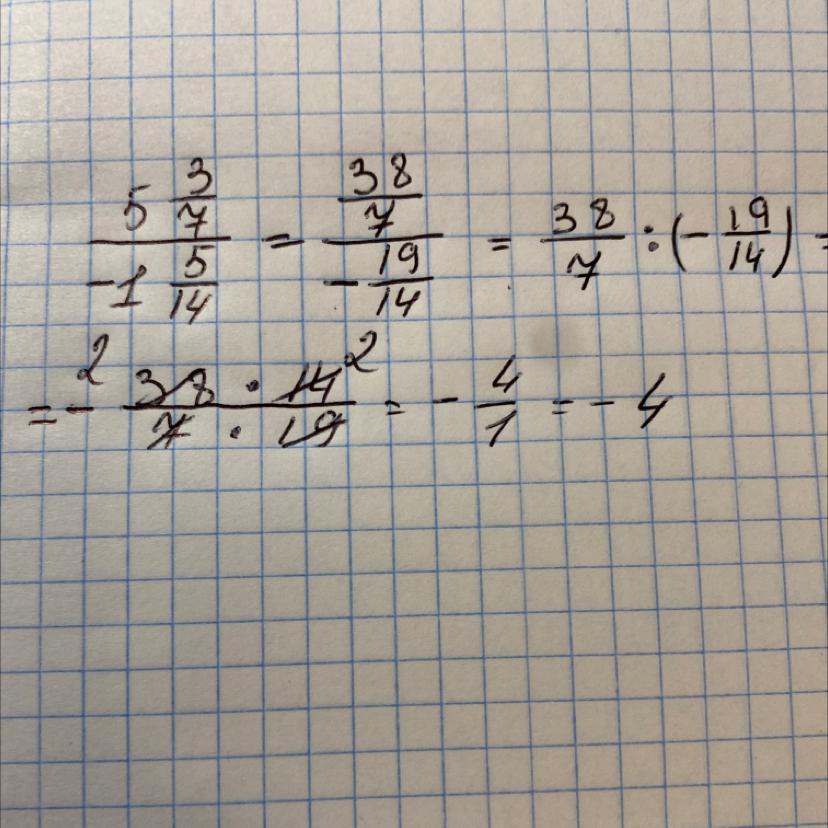 5 3/7 / -1 5/14 = 38/7 / - 19/14 = 38/7 : (- 19/14) =
= - 2 38 · 14 2 / 7 · 19 = - 4/1 = - 4